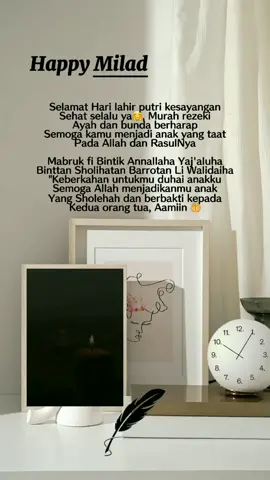 Happy Milad
Selamat Hari lahir putri kesayangan
Sehat selalu ya😊, Murah rezeki
Ayah dan bunda berharap
Semoga kamu menjadi anak yang taat
Pada Allah dan RasulNya
Mabruk fi Bintik Annallaha Yaj'aluha
Binttan Sholihatan Barrotan Li Walidaiha
"Keberkahan untukmu duhai anakku
Semoga Allah menjadikanmu anak
Yang Sholehah dan berbakti kepada
Kedua orang tua, Aamiin 🤲
12
1
2
3
4
5
6
7
8
9
10
11